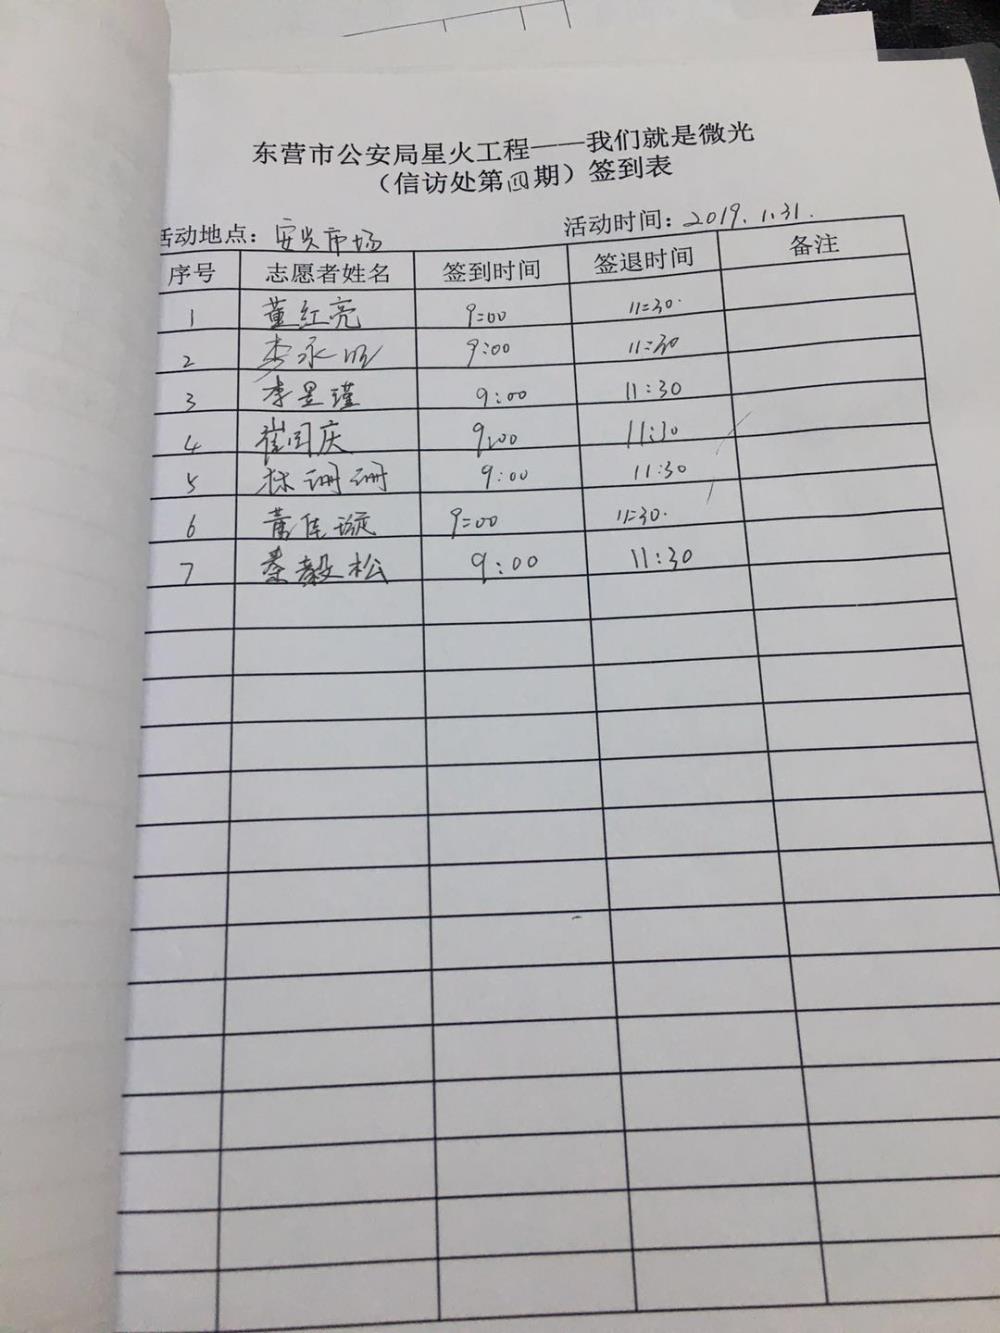 东营市公安局星火工程——我们就是微光
（信访处第四期）签到表
活动地点：安兴市场 活动时间：2019.1.31.
序号 志愿者姓名 签到时间 签退时间 备注
1 董红亮 9:00 11:30
2 李永 9:00 11:30
3 李昱瑾 9:00 11:30
4 崔国庆 9:00 11:30
5 珊珊 9:00 11:30
6 董佳璇 9:00 11:30
7 秦毅松 9:00 11:30